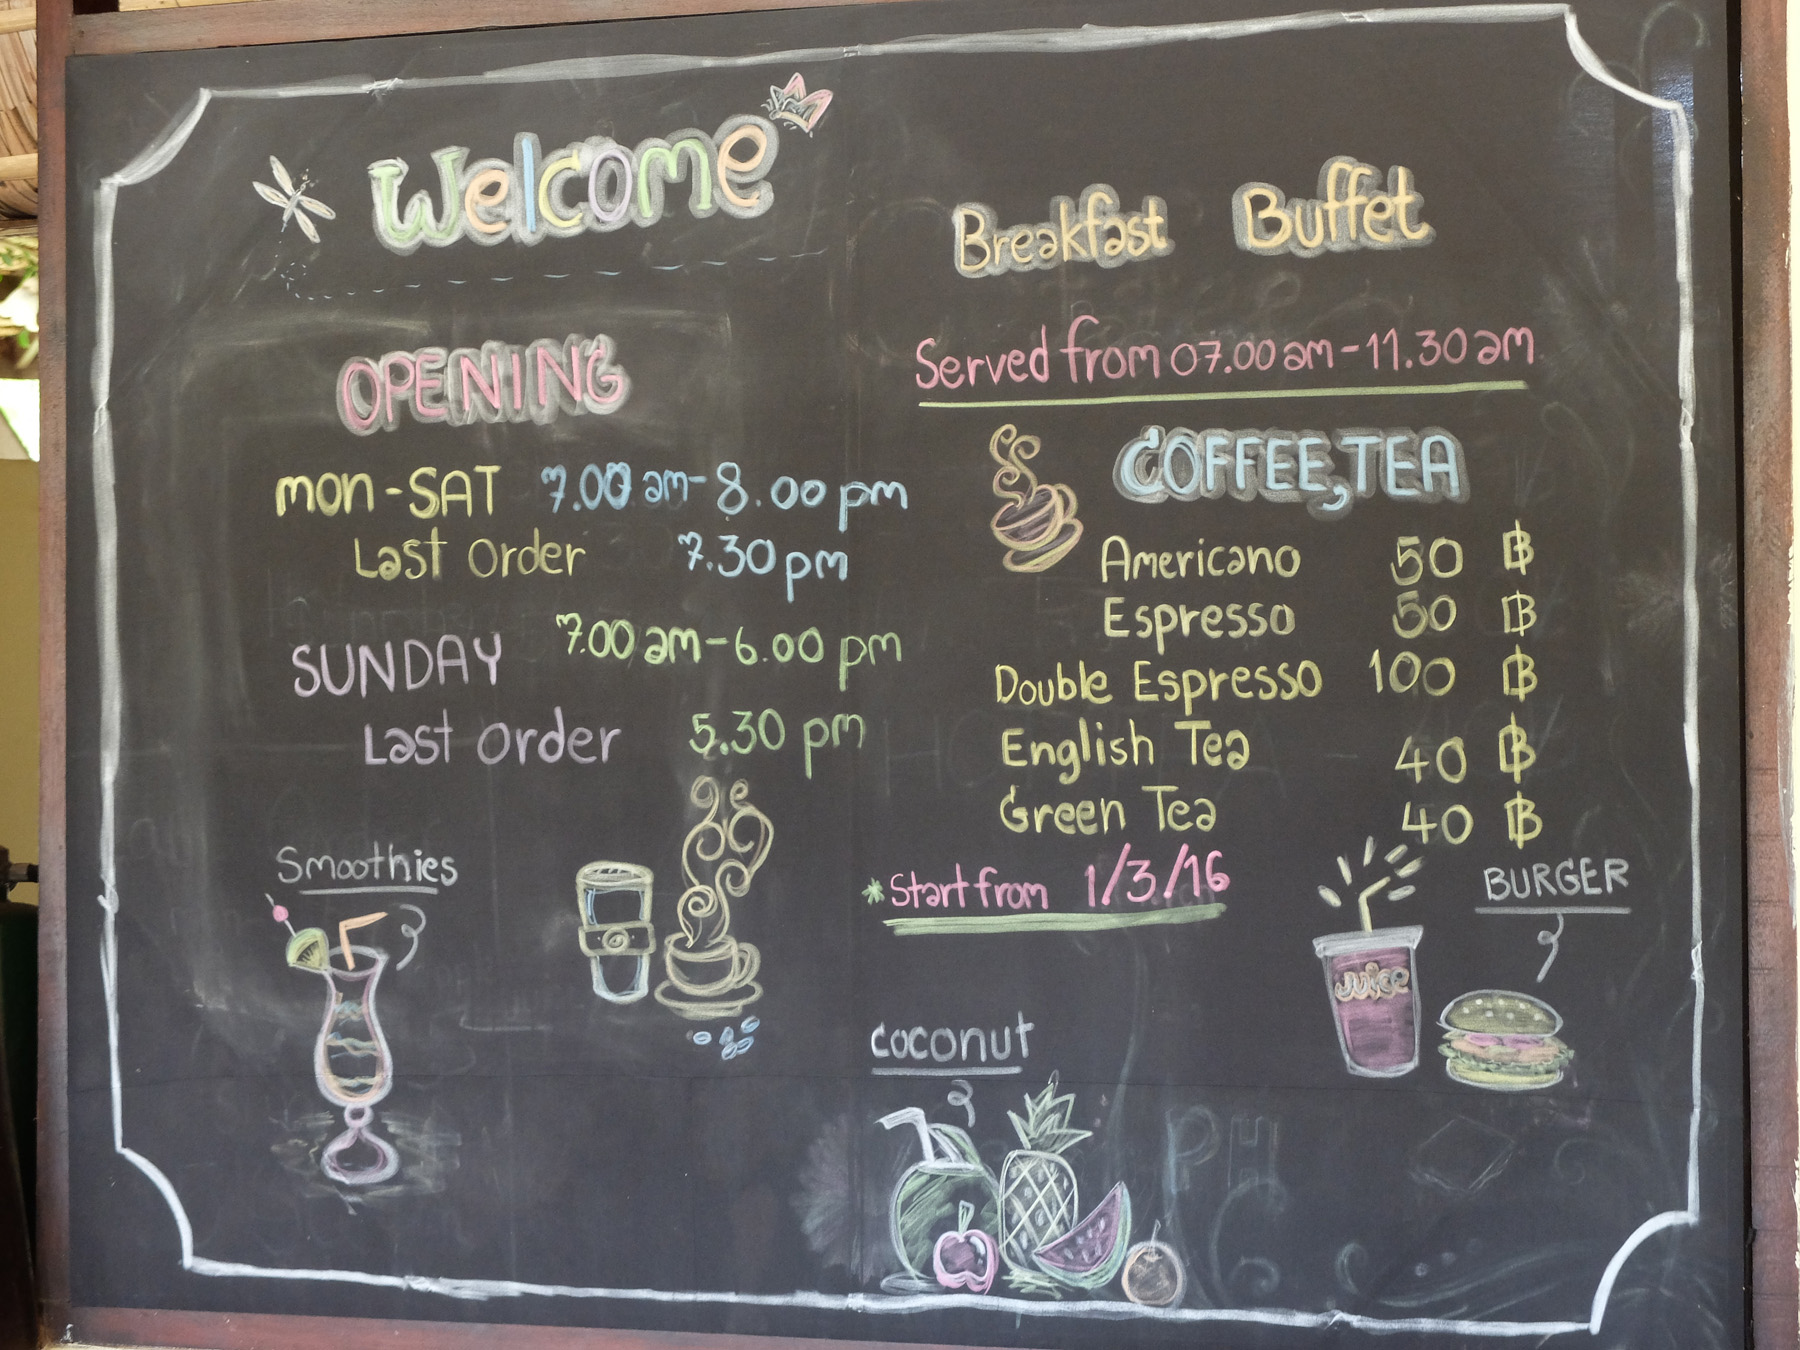 Welcome
OPENING
mon-SAT 7.00 am-8.00 pm
Last Order 7.30 pm
SUNDAY 7.00 am-6.00 pm
Last Order 5.30 pm
Smoothies
Breakfast Buffet
Served from 07.00 am-11.30 am
COFFEE,TEA
Americano 50 ฿
Espresso 50 ฿
Double Espresso 100 ฿
English Tea 40 ฿
Green Tea 40 ฿
*Start from 1/3/16
BURGER
JUICE
coconut
PH